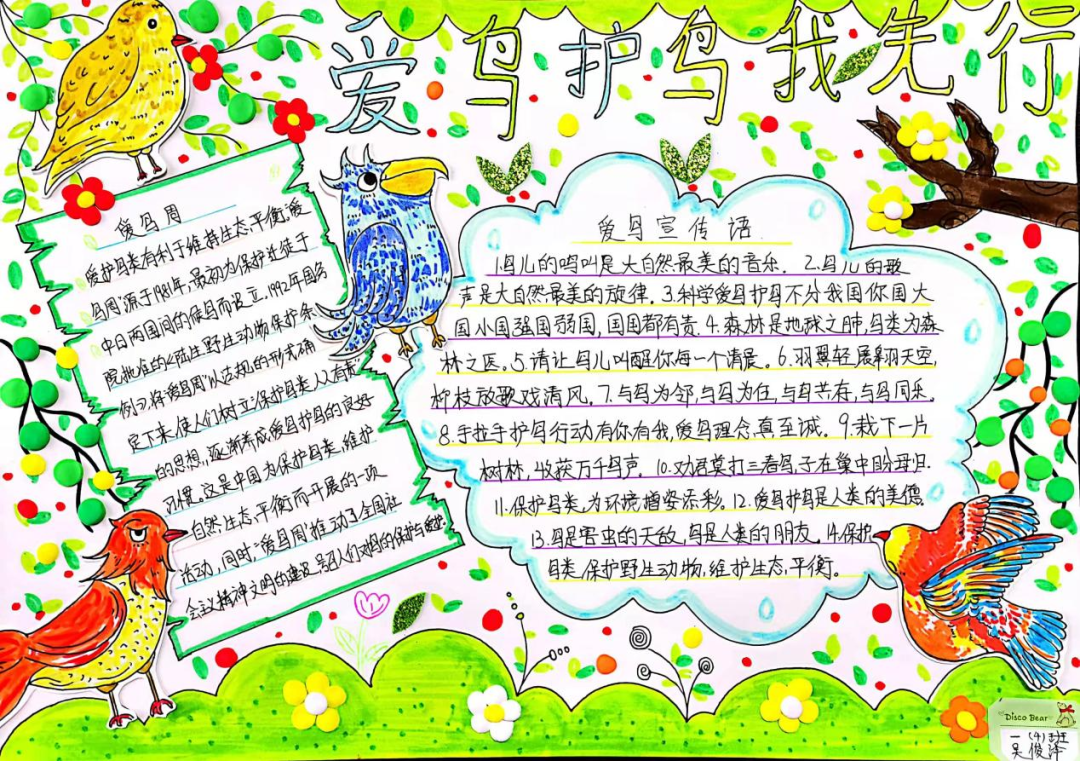 爱鸟护鸟我先行
爱鸟周
爱护鸟类有利于维持生态平衡,爱
鸟周"源于1981年,最初为保护迁徙于
中日两国间的候鸟而设立.1992年国务
院批准的《陆生野生动物保护条
例》将"爱鸟周"以法规的形式确
定下来,使人们树立保护鸟类,人人有责
的思想,逐渐养成爱鸟护鸟的良好
习惯。这是中国为保护鸟类,维护
自然生态平衡而开展的一项
活动,同时,"爱鸟周"推动了全国社
会议精神文明的建设,号召人们对鸟的保护与爱护.
爱鸟宣传语
1.鸟儿的鸣叫是大自然最美的音乐. 2.鸟儿的歌
声是大自然最美的旋律.3.科学爱鸟护鸟不分我国你国大
国小国强国弱国,国国都有责.4.森林是地球之肺,鸟类为森
林之医。5.请让鸟儿叫醒你每一个清晨。6.羽翼轻展翱羽天空,
柳枝放歌戏清风。7.与鸟为邻,与鸟为住,与鸟共存,与鸟同乐。
8.手拉手护鸟行动有你有我,爱鸟理念真至诚。9.栽下一片
树林,收获万千鸟声。10.劝君莫打三春鸟,子在巢中盼母归.
11.保护鸟类,为环境增姿添彩.12.爱鸟护鸟是人类的美德.
13.鸟是害虫的天敌,鸟是人类的朋友。14.保护
鸟类,保护野生动物,维护生态平衡。
Disco Bear
一(4)班
吴俊泽